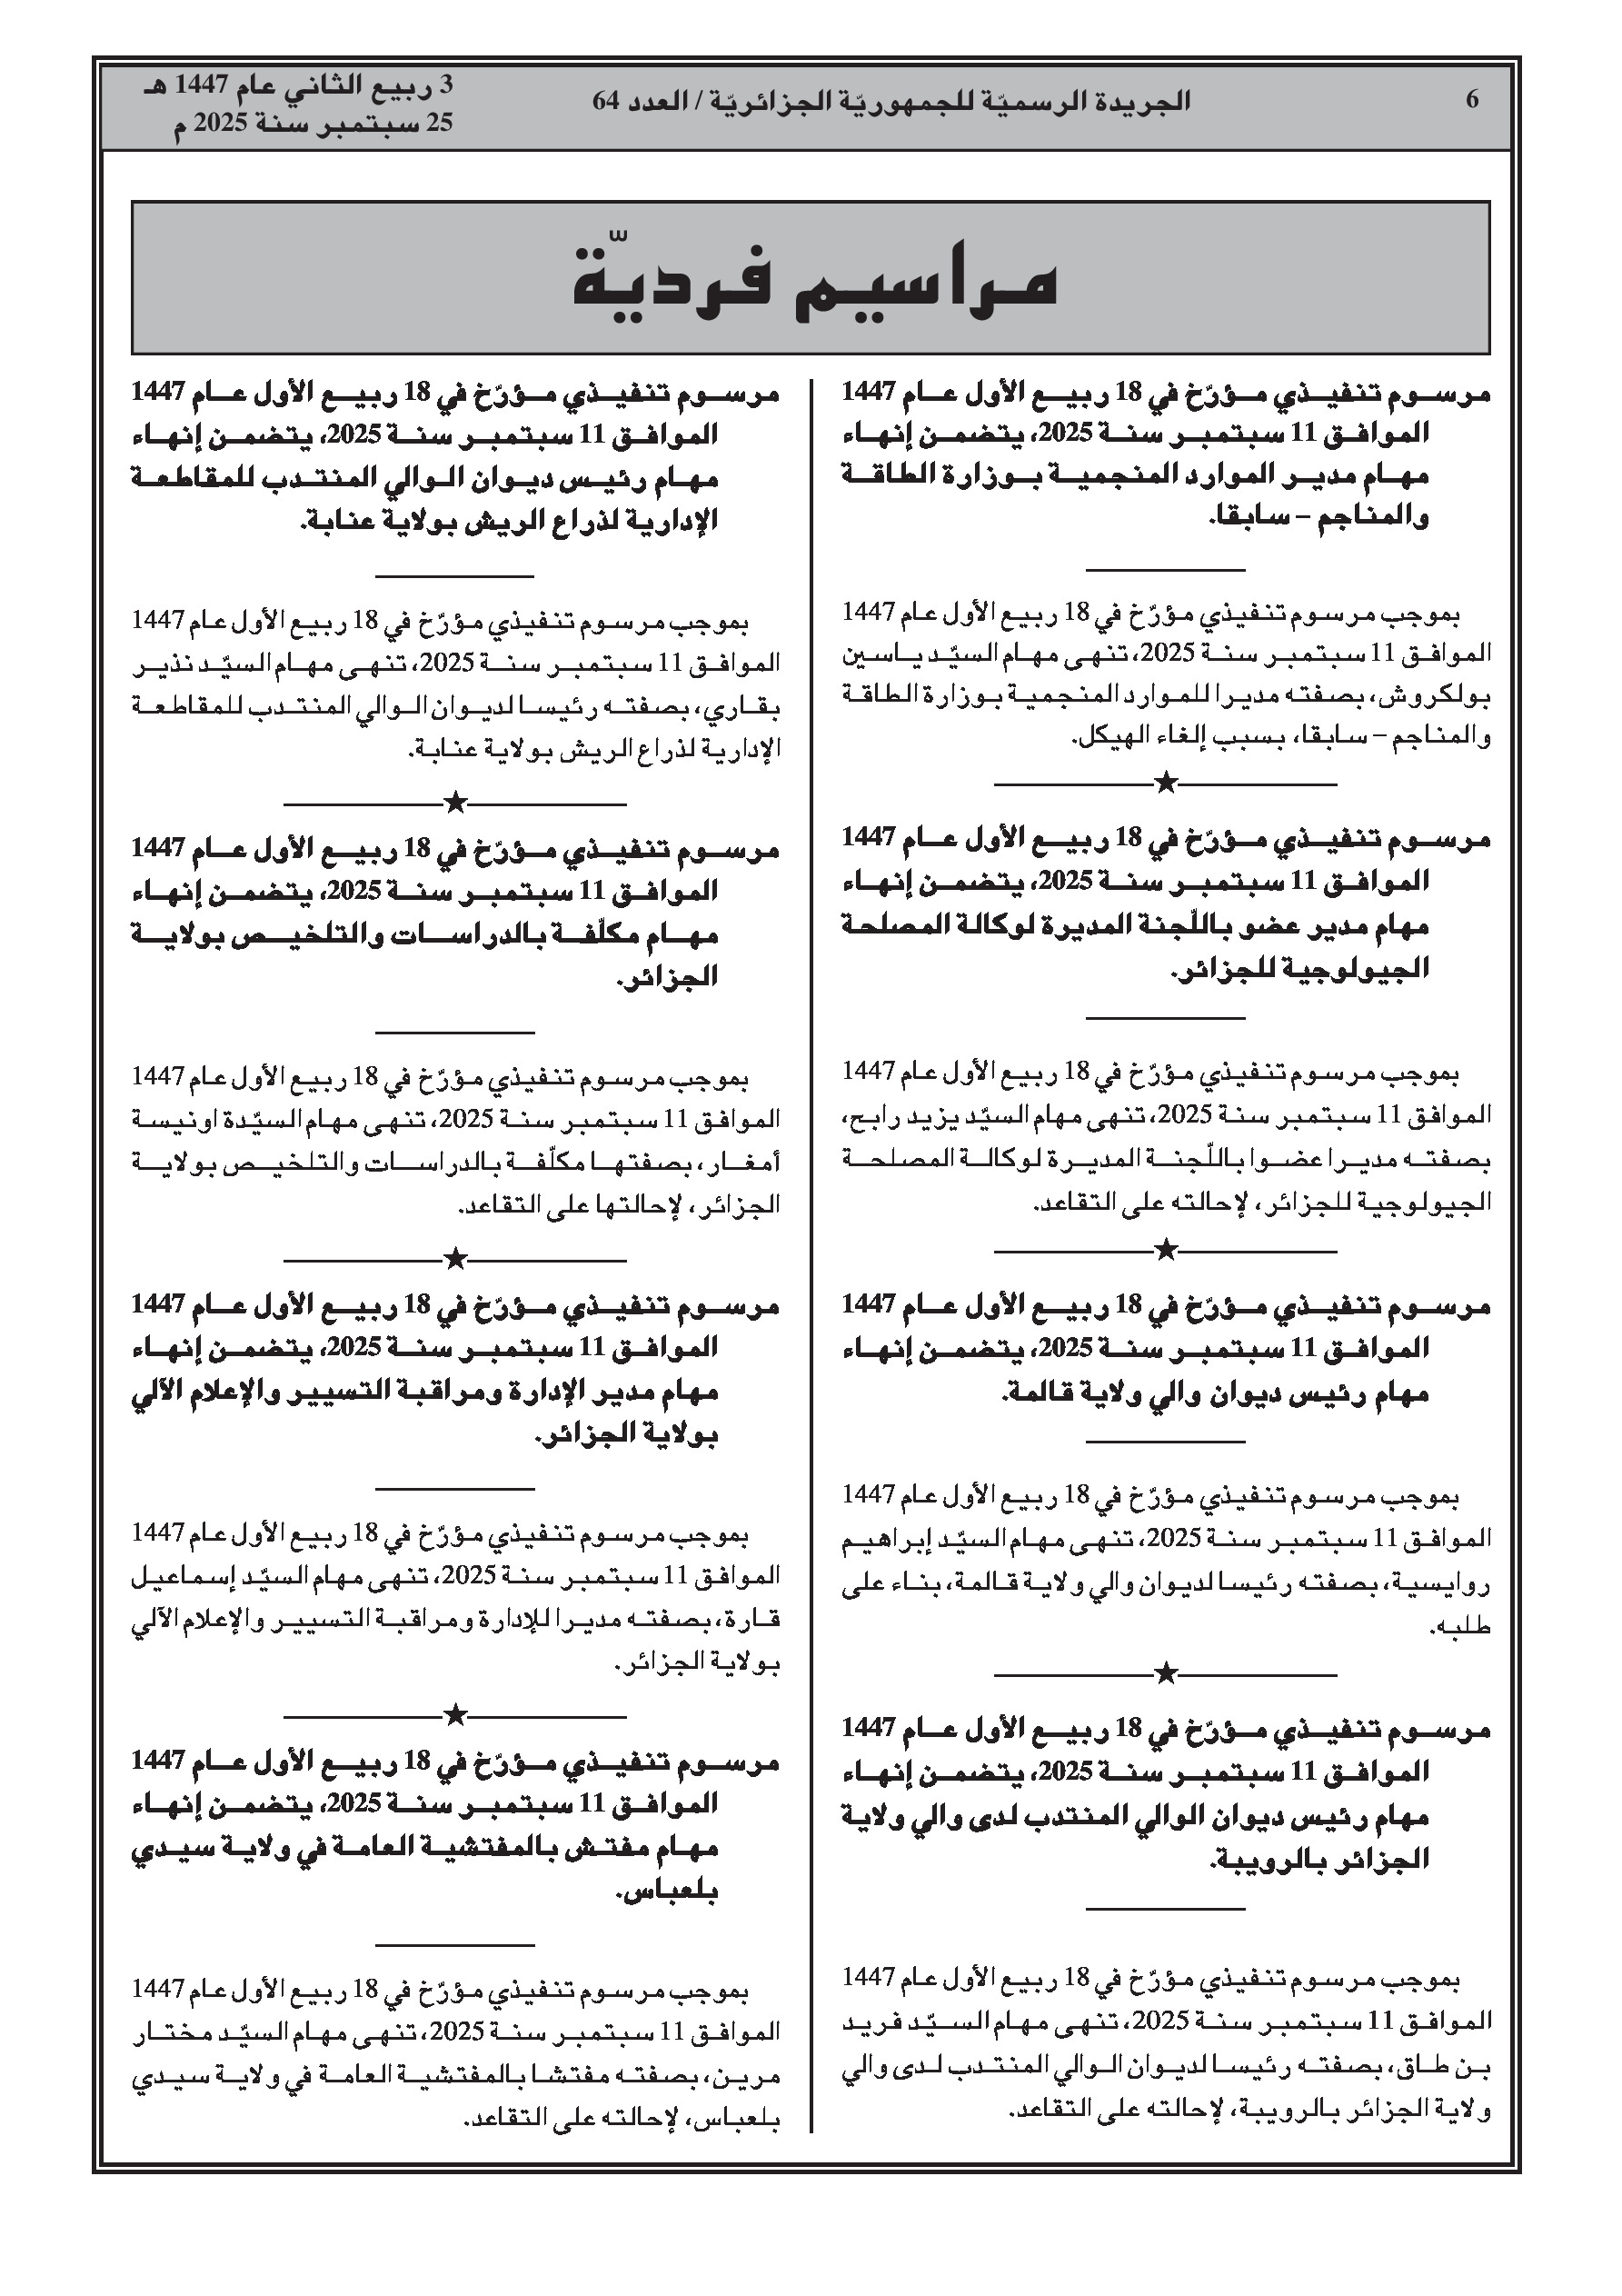 6
الجريدة الرسميّة للجمهوريّة الجزائريّة / العدد 64
3 ربيع الثاني عام 1447 هـ
25 سبتمبر سنة 2025 م
مراسيم فرديّة
مرسوم تنفيذي مؤرّخ في 18 ربيع الأول عام 1447
الموافق 11 سبتمبر سنة 2025، يتضمن إنهاء
مهام مدير الموارد المنجمية بوزارة الطاقة
والمناجم – سابقا.
بموجب مرسوم تنفيذي مؤرّخ في 18 ربيع الأول عام 1447
الموافق 11 سبتمبر سنة 2025، تنهى مهام السيّد ياسين
بولكروش، بصفته مديرا للموارد المنجمية بوزارة الطاقة
والمناجم – سابقا، بسبب إلغاء الهيكل.
مرسوم تنفيذي مؤرّخ في 18 ربيع الأول عام 1447
الموافق 11 سبتمبر سنة 2025، يتضمن إنهاء
مهام مدير عضو باللّجنة المديرة لوكالة المصلحة
الجيولوجية للجزائر.
بموجب مرسوم تنفيذي مؤرّخ في 18 ربيع الأول عام 1447
الموافق 11 سبتمبر سنة 2025، تنهى مهام السيّد يزيد رابح،
بصفته مديرا عضوا باللّجنة المديرة لوكالة المصلحة
الجيولوجية للجزائر، لإحالته على التقاعد.
مرسوم تنفيذي مؤرّخ في 18 ربيع الأول عام 1447
الموافق 11 سبتمبر سنة 2025، يتضمن إنهاء
مهام رئيس ديوان والي ولاية قالمة.
بموجب مرسوم تنفيذي مؤرّخ في 18 ربيع الأول عام 1447
الموافق 11 سبتمبر سنة 2025، تنهى مهام السيّد إبراهيم
روايسية، بصفته رئيسا لديوان والي ولاية قالمة، بناء على
طلبه.
مرسوم تنفيذي مؤرّخ في 18 ربيع الأول عام 1447
الموافق 11 سبتمبر سنة 2025، يتضمن إنهاء
مهام رئيس ديوان الوالي المنتدب لدى والي ولاية
الجزائر بالرويبة.
بموجب مرسوم تنفيذي مؤرّخ في 18 ربيع الأول عام 1447
الموافق 11 سبتمبر سنة 2025، تنهى مهام السيّد فريد
بن طاق، بصفته رئيسا لديوان الوالي المنتدب لدى والي
ولاية الجزائر بالرويبة، لإحالته على التقاعد.
مرسوم تنفيذي مؤرّخ في 18 ربيع الأول عام 1447
الموافق 11 سبتمبر سنة 2025، يتضمن إنهاء
مهام رئيس ديوان الوالي المنتدب للمقاطعة
الإدارية لذراع الريش بولاية عنابة.
بموجب مرسوم تنفيذي مؤرّخ في 18 ربيع الأول عام 1447
الموافق 11 سبتمبر سنة 2025، تنهى مهام السيّد نذير
بقاري، بصفته رئيسا لديوان الوالي المنتدب للمقاطعة
الإدارية لذراع الريش بولاية عنابة.
مرسوم تنفيذي مؤرّخ في 18 ربيع الأول عام 1447
الموافق 11 سبتمبر سنة 2025، يتضمن إنهاء
مهام مكلّفة بالدراسات والتلخيص بولاية
الجزائر.
بموجب مرسوم تنفيذي مؤرّخ في 18 ربيع الأول عام 1447
الموافق 11 سبتمبر سنة 2025، تنهى مهام السيّدة اونيسة
أمغار، بصفتها مكلّفة بالدراسات والتلخيص بولاية
الجزائر، لإحالتها على التقاعد.
مرسوم تنفيذي مؤرّخ في 18 ربيع الأول عام 1447
الموافق 11 سبتمبر سنة 2025، يتضمن إنهاء
مهام مدير الإدارة ومراقبة التسيير والإعلام الآلي
بولاية الجزائر.
بموجب مرسوم تنفيذي مؤرّخ في 18 ربيع الأول عام 1447
الموافق 11 سبتمبر سنة 2025، تنهى مهام السيّد إسماعيل
قارة، بصفته مديرا للإدارة ومراقبة التسيير والإعلام الآلي
بولاية الجزائر.
مرسوم تنفيذي مؤرّخ في 18 ربيع الأول عام 1447
الموافق 11 سبتمبر سنة 2025، يتضمن إنهاء
مهام مفتش بالمفتشية العامة في ولاية سيدي
بلعباس.
بموجب مرسوم تنفيذي مؤرّخ في 18 ربيع الأول عام 1447
الموافق 11 سبتمبر سنة 2025، تنهى مهام السيّد مختار
مرين، بصفته مفتشا بالمفتشية العامة في ولاية سيدي
بلعباس، لإحالته على التقاعد.